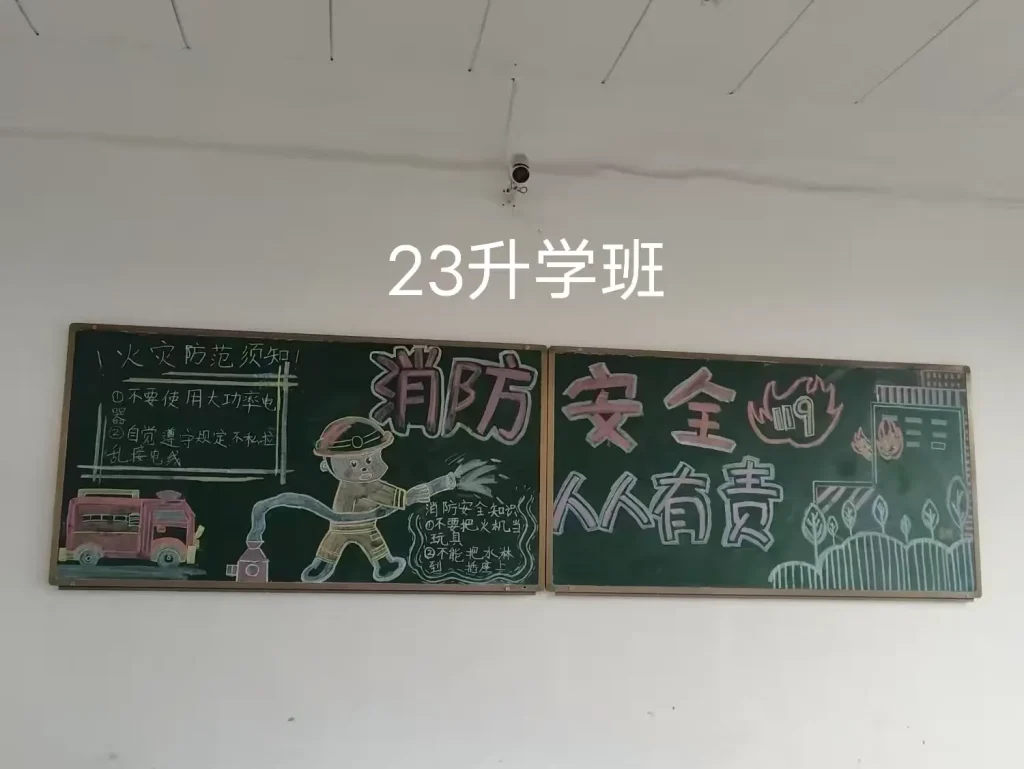 23升学班
火灾防范须知
①不要使用大功率电
器
②自觉遵守规定不私拉
乱接电线
消防安全
119
人人有责
消防安全知识
①不要把火机当
玩具
②不能把水淋
到插座上